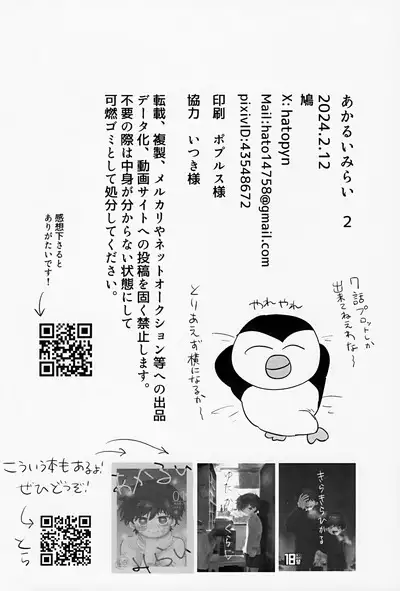 あかるいみらい 2
2024.2.12
鳩
X: hatopyn
Mail:hato14758@gmail.com
pixivID:43548672
印刷 ポプルス様
協力 いつき様
転載、複製、メルカリやネットオークション等への出品
データ化、動画サイトへの投稿を固く禁止します。
不要の際は中身が分からない状態にして
可燃ゴミとして処分してください。
感想下さると
ありがたいです!
7話プロットしか
出来てねえわな〜
やれやれ
とりあえず横になるか〜
こういう本もあるよ!
ぜひどうぞ!
とら
あかるい
みらい
きらきらひかる
18